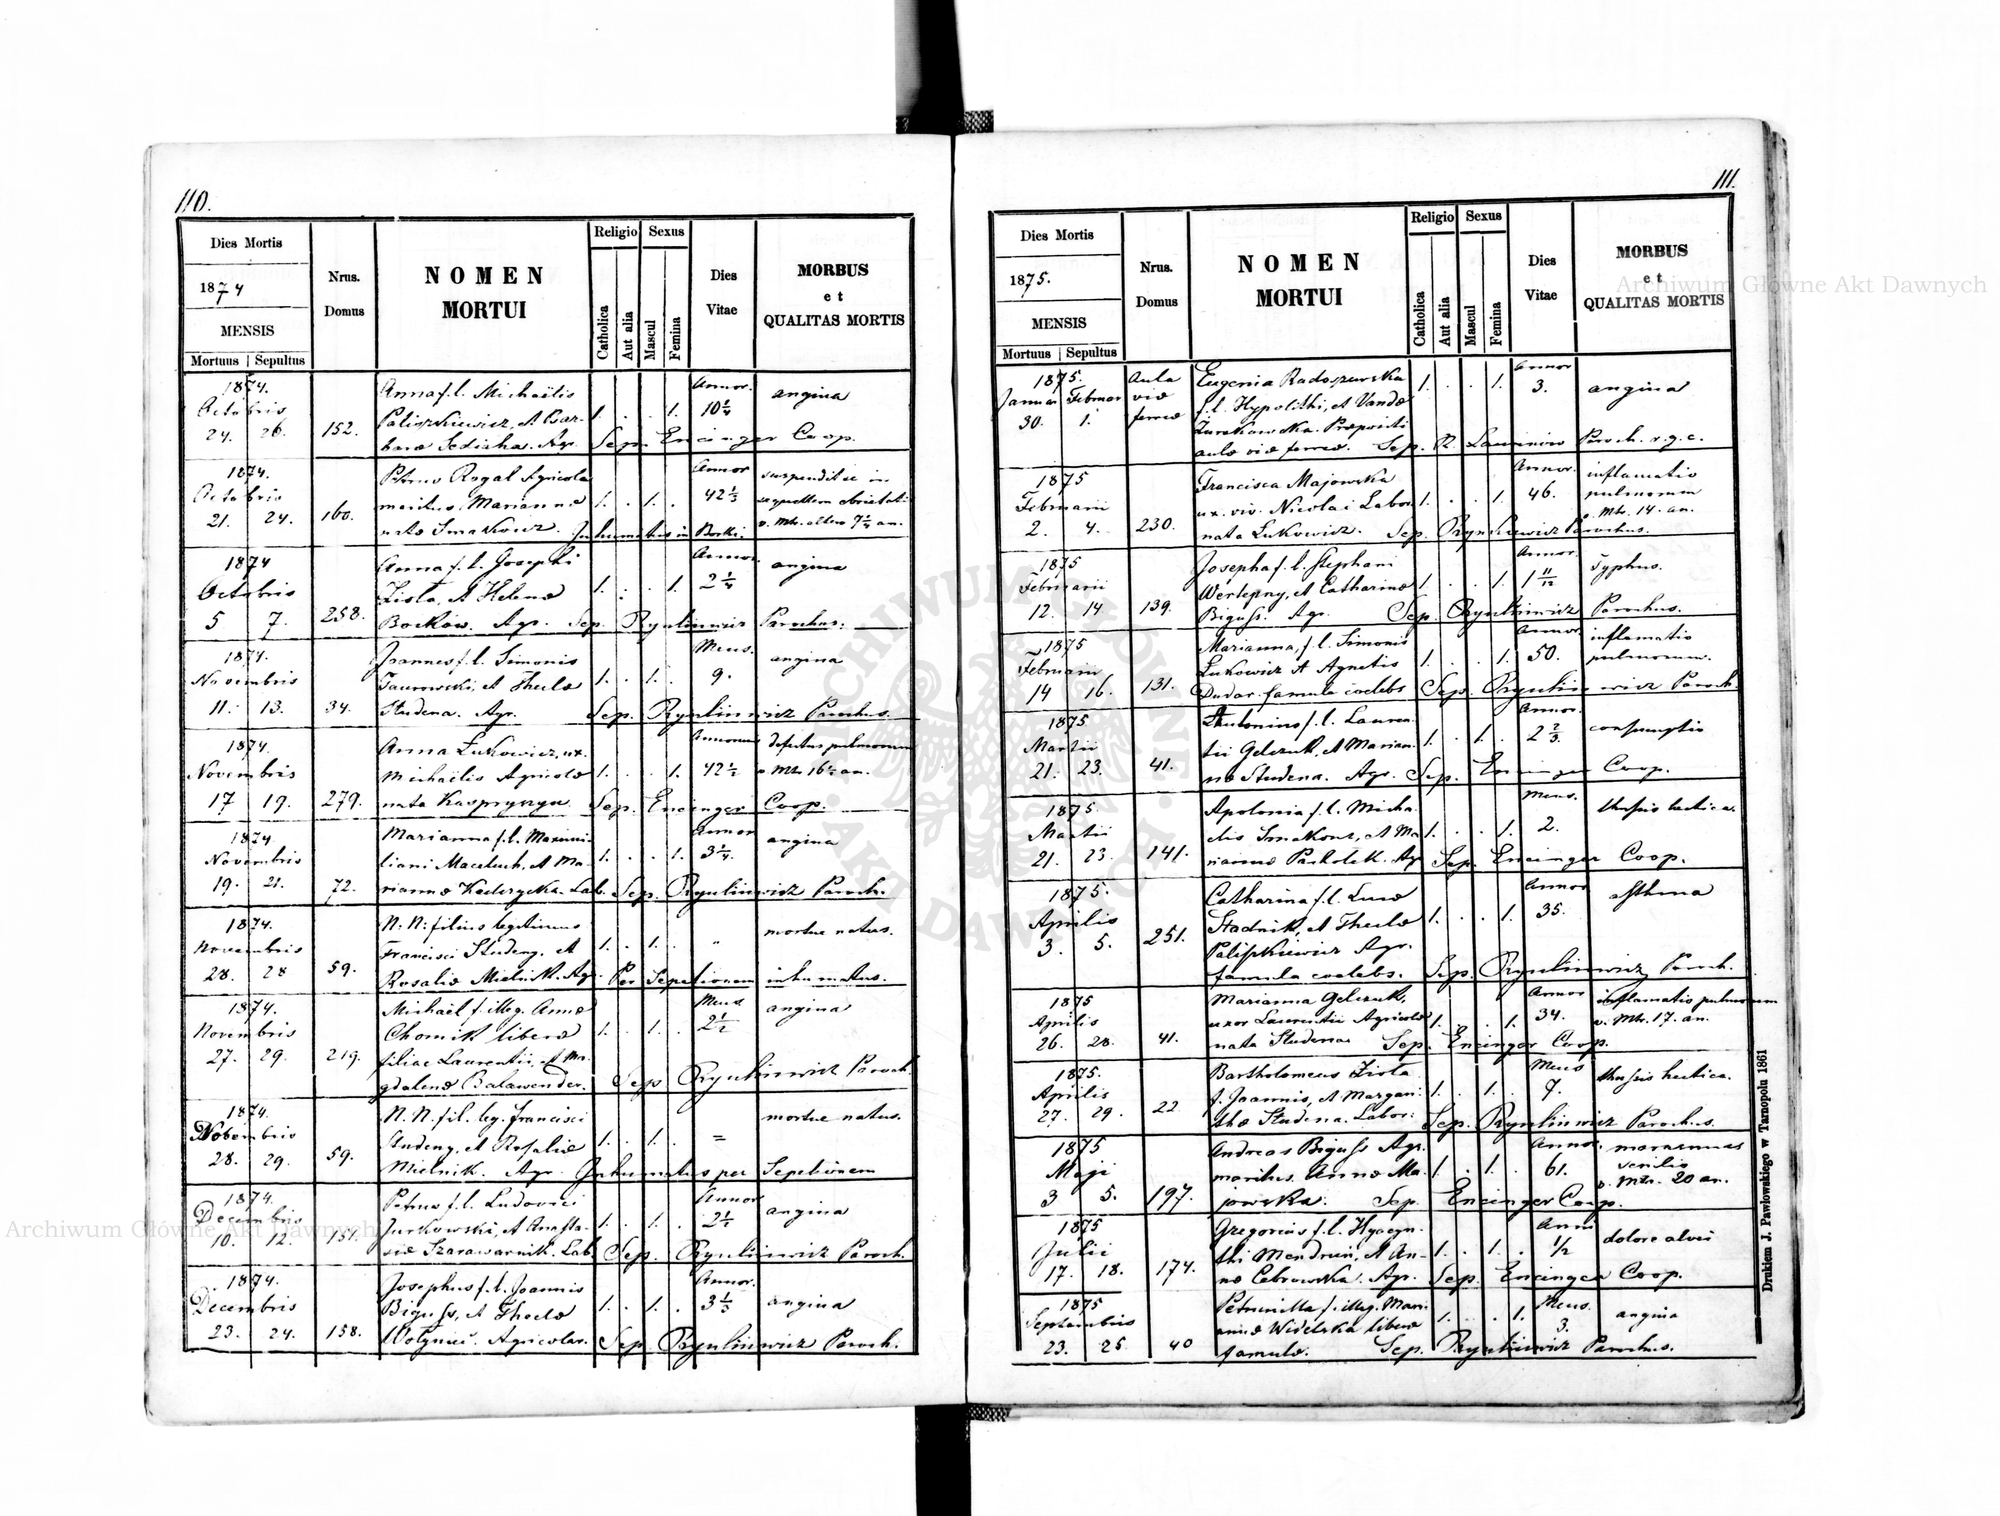 110.
Dies Mortis
1874
MENSIS
Mortuus | Sepultus
Nrus.
Domus
NOMEN
MORTUI
Religio
Catholica
Aut alia
Sexus
Mascul
Femina
Dies
Vitae
MORBUS
et
QUALITAS MORTIS
1874.
Octobris
24. 26.
152.
Anna f. l. Michaëlis
Paliszkiewicz, et Bar-
1. . . 1.
Annor.
10 1/4
angina
Sep. Encinger Coop.
1874.
Octobris
21. 24.
160.
Petrus Rogal Agricola
maritus Marianna
nata Smakowz. Inhumatus in Borki.
1. . 1. .
Annor
42 1/3
suspendit se in
1874
Octobris
5 7.
258.
Anna f. l. Josephi
Ziola, et Helena
Boćków. Agr. Sep. Rynliniwicz Parochus.
1. . . 1.
Annor.
2 1/4
angina
1874.
Novembris
11. 13.
34.
Joannes f. l. Simonis
Taurowski, et Thecla
Studena. Agr. Sep. Rynliniwicz Parochus.
1. . 1. .
Mens.
9.
angina
1874.
Novembris
17 19.
279.
Anna Łukowicz, ux.
Michaëlis Agricola
nata Kaspryszyn. Sep. Encinger Coop.
1. . . 1.
Annorum
42 1/2
defectus pulmonum
1874.
Novembris
19. 21.
72.
Marianna f. l. Maximi-
liani Maceluch, et Ma-
rianna Kaderzycka. Lab. Sep. Rynliniwicz Paroch.
1. . . 1.
Annor
3 1/4.
angina
1874.
Novembris
28. 28
59.
N. N. filius legitimus
Francisci Studeny, et
Rosalia Mielnik. Agr. Per Sepelionem inhumatus.
1. . 1. .
mortue natus.
1874.
Novembris
27. 29.
219.
Michaël f. illeg. Anna
Chomik libera
filiae Laurentii, et Ma-
gdalena Balawender. Sep Rynliniwicz Paroch.
1. . 1. .
Mens
2 1/2
angina
1874.
Novembris
28. 29.
59.
N. N. fil. leg. Francisci
Studeny, et Rosalia
Mielnik. Agr. Inhumatus per Sepelionem
1. . 1. .
=
mortue natus.
1874.
Decembris
10. 12.
151.
Petrus f. l. Ludovici
Jurkowski, et Anasta-
sia Szarawarnik. Lab. Sep. Rynliniwicz Paroch.
1. . 1. .
Annor
2 1/2
angina
1874.
Decembris
23. 24.
158.
Josephus f. l. Joannis
Biguss, et Thecla
Wołyniec. Agricolar. Sep. Rynliniwicz Paroch.
1. . 1. .
Annor.
3 1/3
angina
111.
Dies Mortis
1875.
MENSIS
Mortuus | Sepultus
Nrus.
Domus
NOMEN
MORTUI
Religio
Catholica
Aut alia
Sexus
Mascul
Femina
Dies
Vitae
MORBUS
et
QUALITAS MORTIS
1875.
Januar Februar
30. 1.
Aula
via
ferrea
Eugenia Radoszewska
f. l. Hypolithi, et Vanda
Żurakowska. Praepositi
aula via ferrea. Sep. R. Paroch. r. g. c.
1. . . 1.
Annor
3.
angina
1875
Februarii
2. 4.
230.
Francisca Majowska
ux. viv. Nicolai Labor.
nata Łukowicz. Sep. Rynliniwicz Parochus.
1. . . 1.
Annor.
46.
inflamatio
pulmonum
v. Mtr. 14. an.
1875
Februarii
12. 14
139.
Josepha f. l. Stephani
Wertepny, et Catharina
Biguss. Agr. Sep. Rynliniwicz Parochus.
1. . . 1.
Annor.
1 11/12
Typhus.
1875
Februarii
14 16.
131.
Marianna, f. l. Simonis
Łukowicz et Agnetis
Dudar famula coelebs Sep. Rynliniwicz Paroch.
1. . . 1.
Annor.
50.
inflamatio
pulmonum.
1875
Martii
21. 23.
41.
Antonius f. l. Lauren-
tii Gelczuk, et Marian-
na Studena. Agr. Sep. Encinger Coop.
1. . 1. .
Annor.
2 2/3.
consumptio
1875.
Martii
21. 23.
141.
Apolonia f. l. Micha-
elis Smakouz, et Ma-
rianna Pachołek. Agr Sep. Encinger Coop.
1. . . 1.
Mens.
2.
thussis hectica.
1875.
Aprilis
3. 5.
251.
Catharina f. l. Luca
Stadnik, et Thecla
Paliszkiewicz Agr.
famula coelebs. Sep. Rynliniwicz Paroch.
1. . . 1.
Annor
35.
asthma
1875
Aprilis
26. 28.
41.
Marianna Gelczuk,
uxor Laurentii Agricola
nata Studena. Sep. Encinger Coop.
1. . . 1.
Annor
34.
inflamatio pulmonum
v. Mtr. 17. an.
1875.
Aprilis
27. 29.
22
Bartholomeus Ziola
f. Joannis, et Margari-
tha Studena. Labor. Sep. Rynliniwicz Parochus.
1. . 1. .
Mens
7.
thussis hectica.
1875
Maji
3 5.
197.
Andreas Biguss Agr.
maritus Anna Ma-
jowska. Sep. Encinger Coop.
1. . 1. .
Annor.
61.
marasmus
senilis
v. Mtr. 20 an.
1875
Julii
17. 18.
174.
Gregorius f. l. Hyacyn-
thi Mendruń, et An-
na Cebrowska. Agr. Sep. Encinger Coop.
1. . 1. .
Anni
1/2
dolore alvei
1875
Septembris
23. 25
40
Petrunilla f. illeg. Mari-
anna Widelska libera
famula. Sep. Rynliniwicz Parochus.
1. . . 1.
Mens.
3.
angina
Drukiem J. Pawłowskiego w Tarnopolu 1861
Archiwum Główne Akt Dawnych
Archiwum Główne Akt Dawnych
ARCHIWUM GŁÓWNE
AKT DAWNYCH